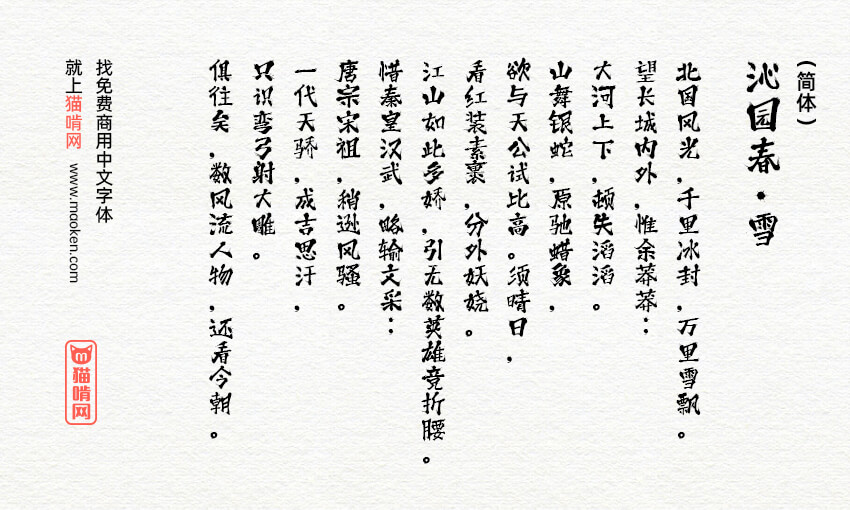 (简体)
沁园春·雪
北国风光，千里冰封，万里雪飘。
望长城内外，惟余莽莽：
大河上下，顿失滔滔。
山舞银蛇，原驰蜡象，
欲与天公试比高。须晴日，
看红装素裹，分外妖娆。
江山如此多娇，引无数英雄竞折腰。
惜秦皇汉武，略输文采：
唐宗宋祖，稍逊风骚。
一代天骄，成吉思汗，
只识弯弓射大雕。
俱往矣，数风流人物，还看今朝。
找免费商用中文字体
就上猫啃网 www.mooken.com
猫啃网